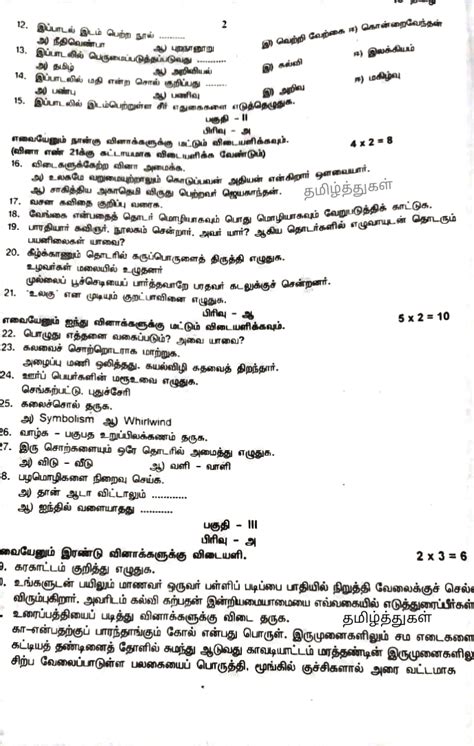 2
12. இப்பாடல் இடம் பெற்ற நூல் ..........
அ) நீதிவெண்பா ஆ) புறநானூறு இ) வெற்றி வேற்கை ஈ) கொன்றைவேந்தன்
13. இப்பாடலில் பெருமைப்படுத்தப்படுவது ............
அ) தமிழ் ஆ) அறிவியல் இ) கல்வி ஈ) இலக்கியம்
14. இப்பாடலில் மதி என்ற சொல் குறிப்பது ........
அ) பண்பு ஆ) பணிவு இ) அறிவு ஈ) மகிழ்வு
15. இப்பாடலில் இடம்பெற்றுள்ள சீர் எதுகைகளை எடுத்தெழுதுக.
பகுதி – II
பிரிவு – அ
எவையேனும் நான்கு வினாக்களுக்கு மட்டும் விடையளிக்கவும். 4 x 2 = 8
(வினா எண் 21க்கு கட்டாயமாக விடையளிக்க வேண்டும்)
16. விடைகளுக்கேற்ற வினா அமைக்க.
அ) உலகமே வறுமையுற்றாலும் கொடுப்பவன் அதியன் என்கிறார் ஔவையார்.
ஆ) சாகித்திய அகாதெமி விருது பெற்றவர் ஜெயகாந்தன். தமிழ்த்துகள்
17. வசன கவிதை குறிப்பு வரைக.
18. வேங்கை என்பதைத் தொடர் மொழியாகவும் பொது மொழியாகவும் வேறுபடுத்திக் காட்டுக.
19. பாரதியார் கவிஞர், நூலகம் சென்றார், அவர் யார்? ஆகிய தொடர்களில் எழுவாயுடன் தொடரும்
பயனிலைகள் யாவை?
20. கீழ்க்காணும் தொடரில் கருப்பொருளைத் திருத்தி எழுதுக.
உழவர்கள் மலையில் உழுதனர்
முல்லைப் பூச்செடியைப் பார்த்தவாறே பரதவர் கடலுக்குச் சென்றனர்.
21. 'உலகு' என முடியும் குறட்பாவினை எழுதுக.
பிரிவு – ஆ
எவையேனும் ஐந்து வினாக்களுக்கு மட்டும் விடையளிக்கவும். 5 x 2 = 10
22. பொழுது எத்தனை வகைப்படும்? அவை யாவை?
23. கலவைச் சொற்றொடராக மாற்றுக.
அழைப்பு மணி ஒலித்தது. கயல்விழி கதவைத் திறந்தார்.
24. ஊர்ப் பெயர்களின் மரூஉவை எழுதுக.
செங்கற்பட்டு, புதுச்சேரி
25. கலைச்சொல் தருக.
அ) Symbolism ஆ) Whirlwind
26. வாழ்க – பகுபத உறுப்பிலக்கணம் தருக.
27. இரு சொற்களையும் ஒரே தொடரில் அமைத்து எழுதுக.
அ) விடு – வீடு ஆ) வளி – வாளி
8. பழமொழிகளை நிறைவு செய்க.
அ) தான் ஆடா விட்டாலும் ............
ஆ) ஐந்தில் வளையாதது ...........
பகுதி – III
பிரிவு – அ
வையேனும் இரண்டு வினாக்களுக்கு விடையளி. 2 x 3 = 6
9. கரகாட்டம் குறித்து எழுதுக.
உங்களுடன் பயிலும் மாணவர் ஒருவர் பள்ளிப் படிப்பை பாதியில் நிறுத்தி வேலைக்குச் செல்ல
விரும்புகிறார். அவரிடம் கல்வி கற்பதன் இன்றியமையாமையை எவ்வகையில் எடுத்துரைப்பீர்கள்
உரைப்பத்தியைப் படித்து வினாக்களுக்கு விடை தருக. தமிழ்த்துகள்
கா–என்பதற்குப் பாரந்தாங்கும் கோல் என்பது பொருள். இருமுனைகளிலும் சம எடைகளை
கட்டியத் தண்டினைத் தோளில் சுமந்து ஆடுவது காவடியாட்டம் மரத்தண்டின் இருமுனைகளிலு
சிற்ப வேலைப்பாடுள்ள பலகையைப் பொருத்தி, மூங்கில் குச்சிகளால் அரை வட்டமாக